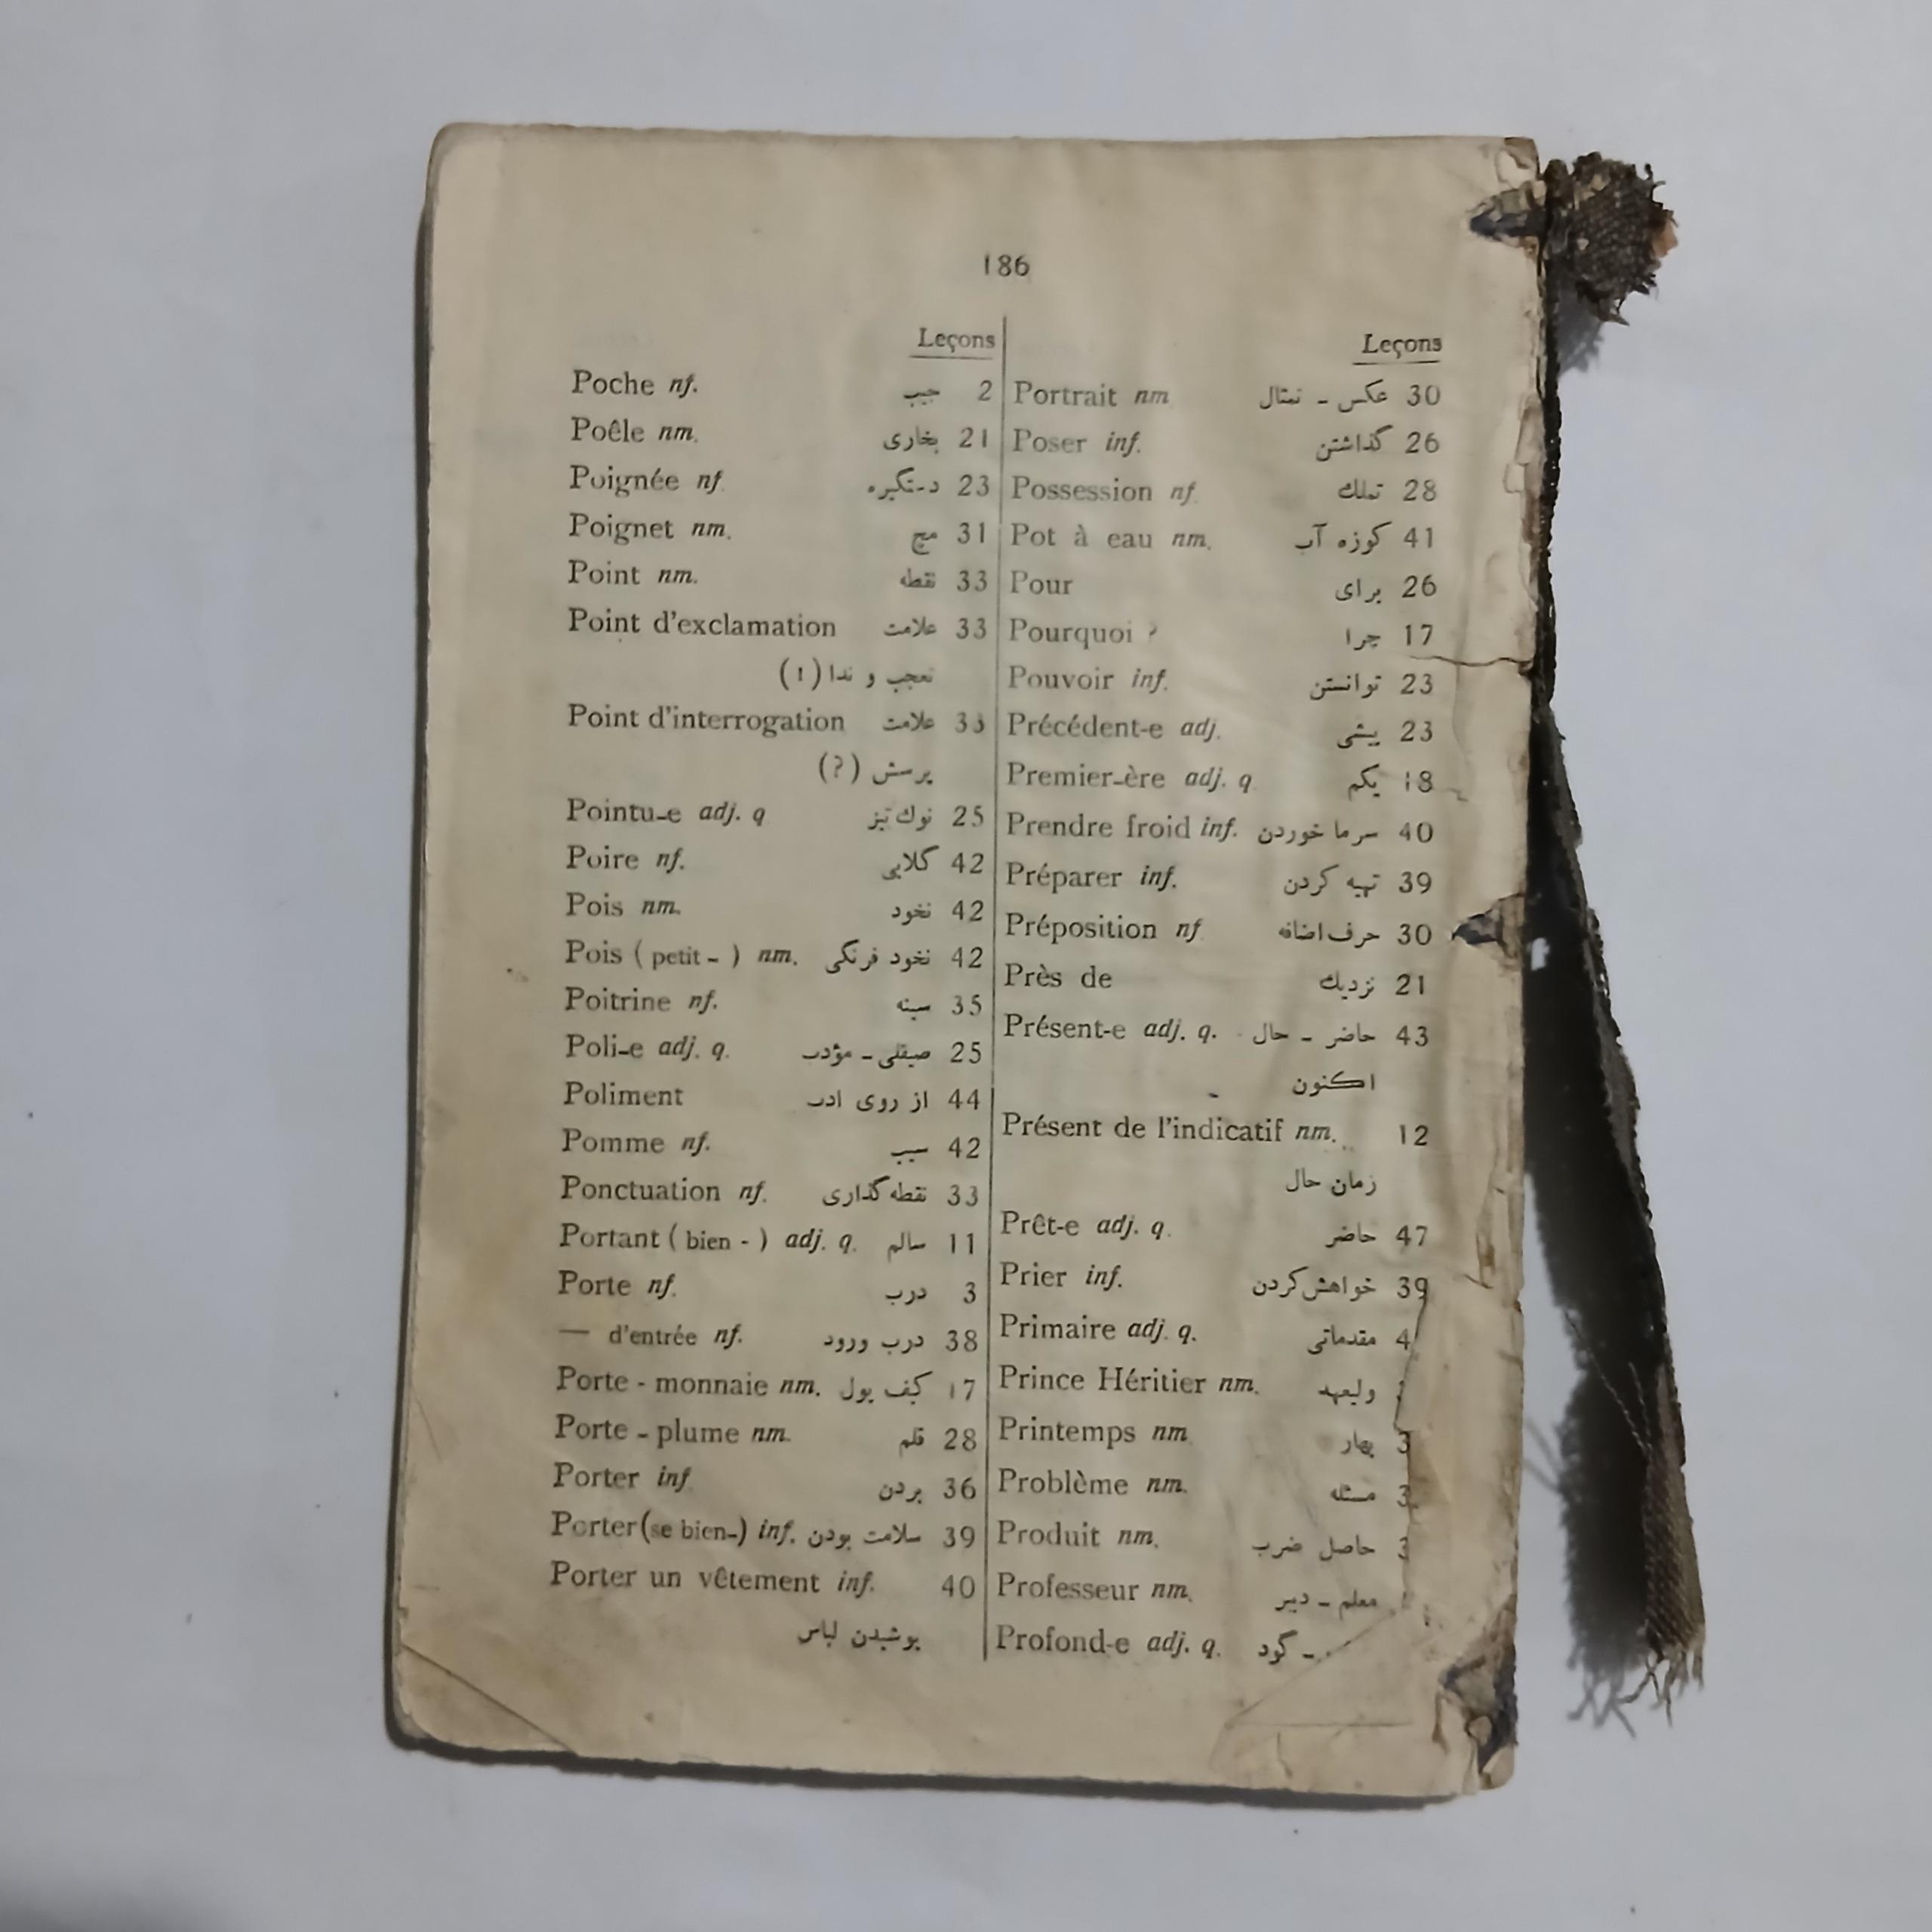 186
Leçons
Poche nf. جیب 2
Poêle nm. بخاری 21
Poignée nf. دستگیره 23
Poignet nm. مچ 31
Point nm. نقطه 33
Point d'exclamation علامت 33
تعجب و ندا (!)
Point d'interrogation علامت 33
پرسش (?)
Pointu-e adj. q نوك تیز 25
Poire nf. گلابی 42
Pois nm. نخود 42
Pois ( petit - ) nm. نخود فرنگی 42
Poitrine nf. سینه 35
Poli-e adj. q. صیقلی - مؤدب 25
Poliment از روی ادب 44
Pomme nf. سیب 42
Ponctuation nf. نقطه گذاری 33
Portant ( bien - ) adj. q. سالم 11
Porte nf. درب 3
— d'entrée nf. درب ورود 38
Porte - monnaie nm. کیف پول 17
Porte - plume nm. قلم 28
Porter inf. بردن 36
Porter (se bien-) inf. سلامت بودن 39
Porter un vêtement inf. 40
پوشیدن لباس
Leçons
Portrait nm عکس - تمثال 30
Poser inf. گذاشتن 26
Possession nf. تملك 28
Pot à eau nm. کوزه آب 41
Pour برای 26
Pourquoi ? چرا 17
Pouvoir inf. توانستن 23
Précédent-e adj. پیشی 23
Premier-ère adj. q یکم 18
Prendre froid inf. سرما خوردن 40
Préparer inf. تهیه کردن 39
Préposition nf. حرف اضافه 30
Près de نزدیك 21
Présent-e adj. q. حاضر - حال 43
اکنون
Présent de l'indicatif nm. 12
زمان حال
Prêt-e adj. q. حاضر 47
Prier inf. خواهش کردن 39
Primaire adj. q. مقدماتی 4
Prince Héritier nm. ولیعهد
Printemps nm بهار 3
Problème nm. مسئله 3
Produit nm. حاصل ضرب 3
Professeur nm. معلم - دبیر
Profond-e adj. q. - گود